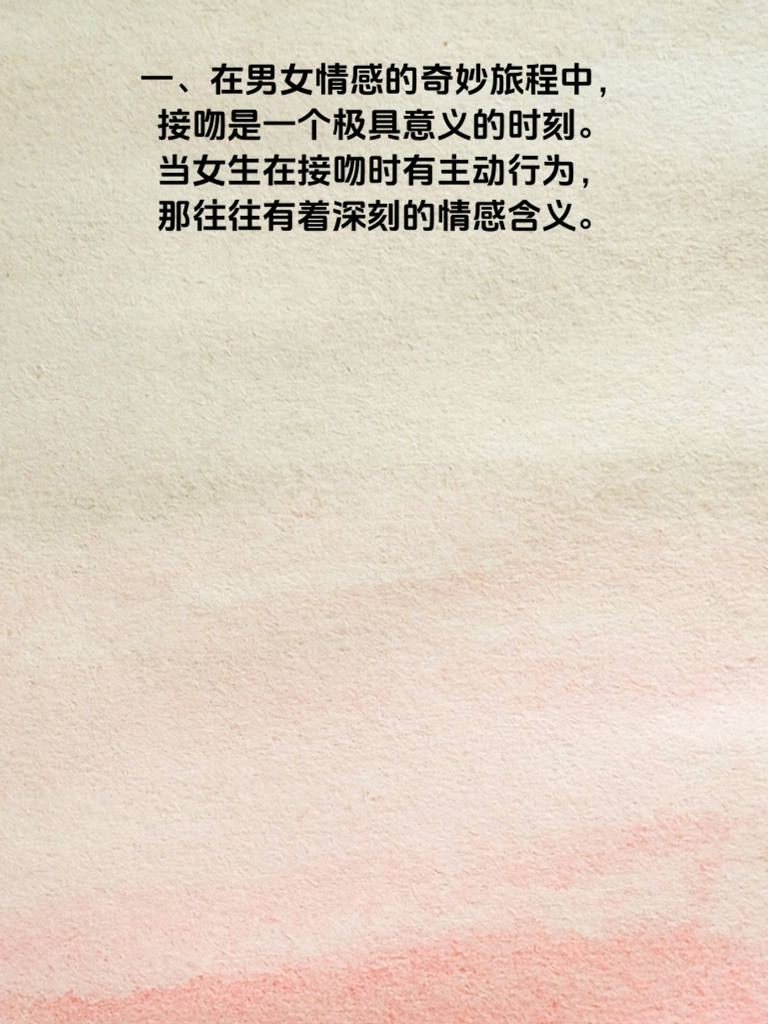 一、在男女情感的奇妙旅程中，
接吻是一个极具意义的时刻。
当女生在接吻时有主动行为，
那往往有着深刻的情感含义。